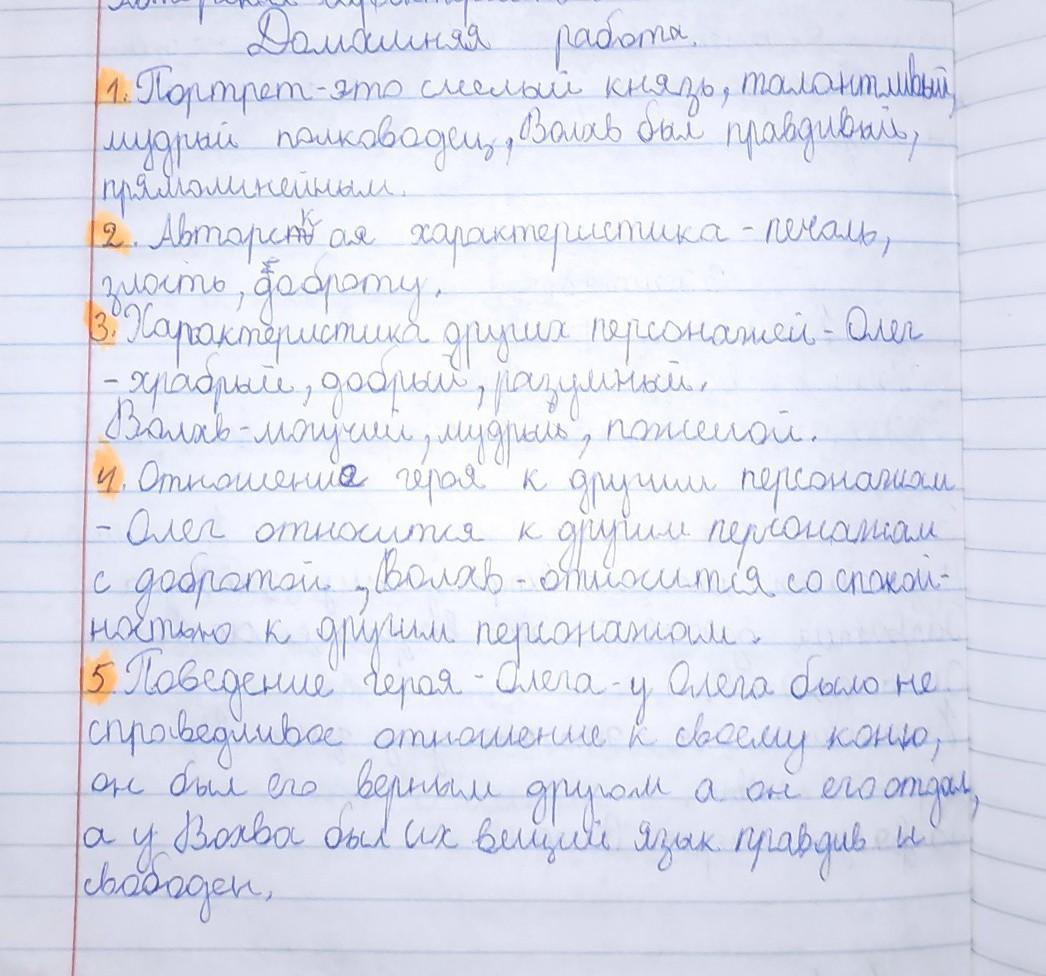 Домашняя работа.
1. Портрет - это смелый князь, талантливый,
мудрый полководец, Волхв был правдивый,
прямолинейным.
2. Автарская характеристика - печаль,
злость, доброту.
3. Характеристика других персонажей - Олег
- храбрый, добрый, разумный.
Волхв - могучий, мудрый, пожелой.
4. Отношение героя к другим персонажам
- Олег относится к другим персонажам
с добротой, Волхв - относится со спокой-
ностью к другим персонажам.
5. Поведение героя - Олега - у Олега было не
справедливое отношение к своему коню,
он был его верным другом а он его отдал,
а у Вохва был их вещий язык правдив и
свободен,